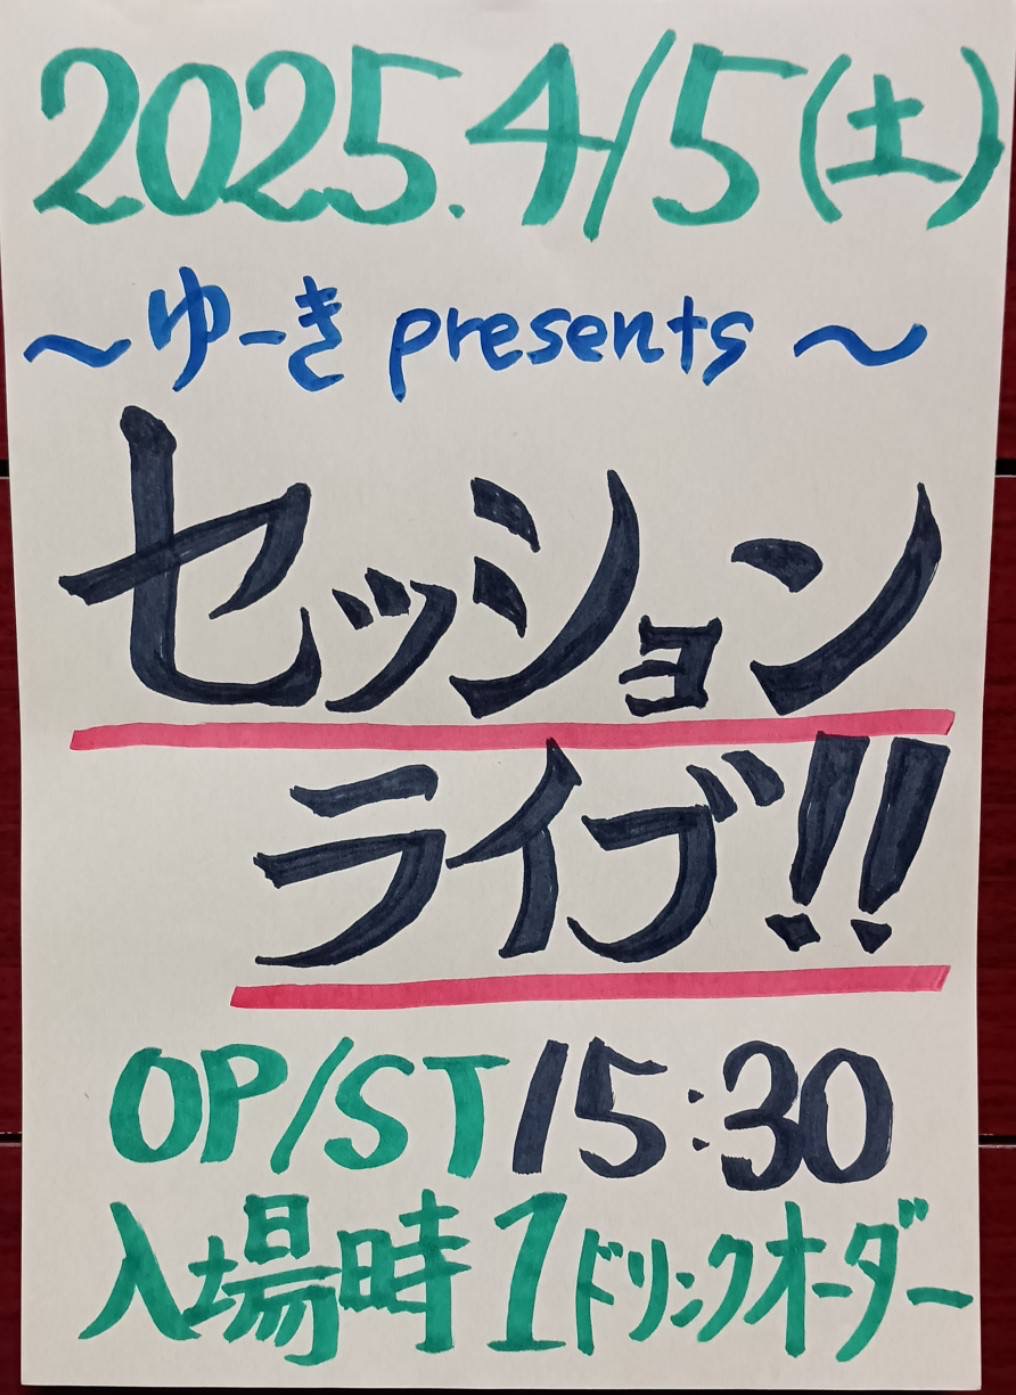 2025.4/5(土)
～ゆーき presents～
セッション
ライブ!!
OP/ST 15:30
入場時1ドリンクオーダー